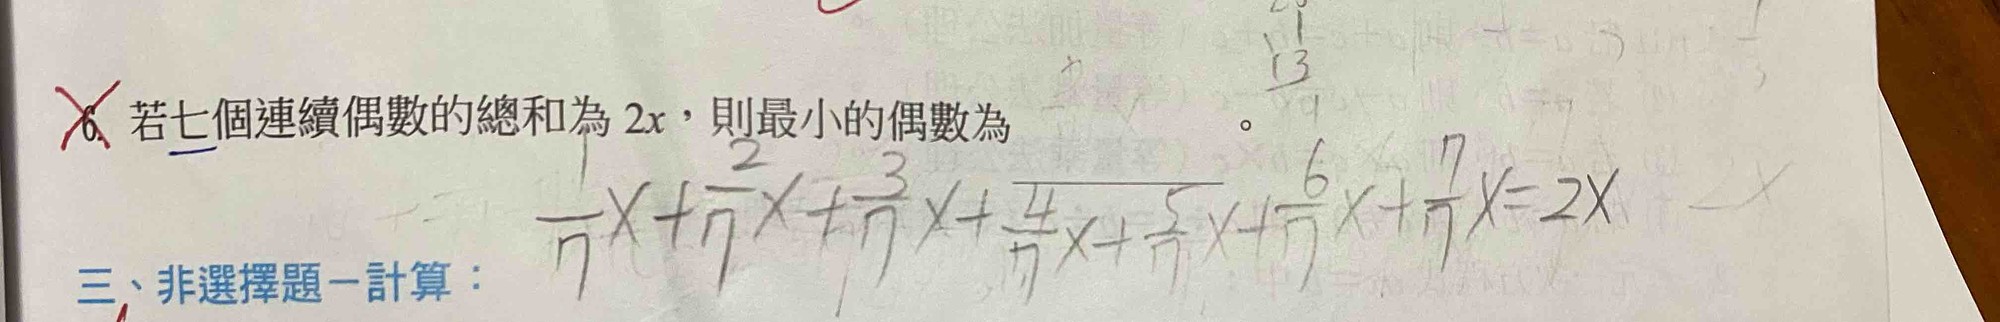 1
13
6. 若七個連續偶數的總和為 2x,則最小的偶數為 。
1/7 x + 2/7 x + 3/7 x + 4/7 x + 5/7 x + 6/7 x + 7/7 x = 2x
三、非選擇題-計算: